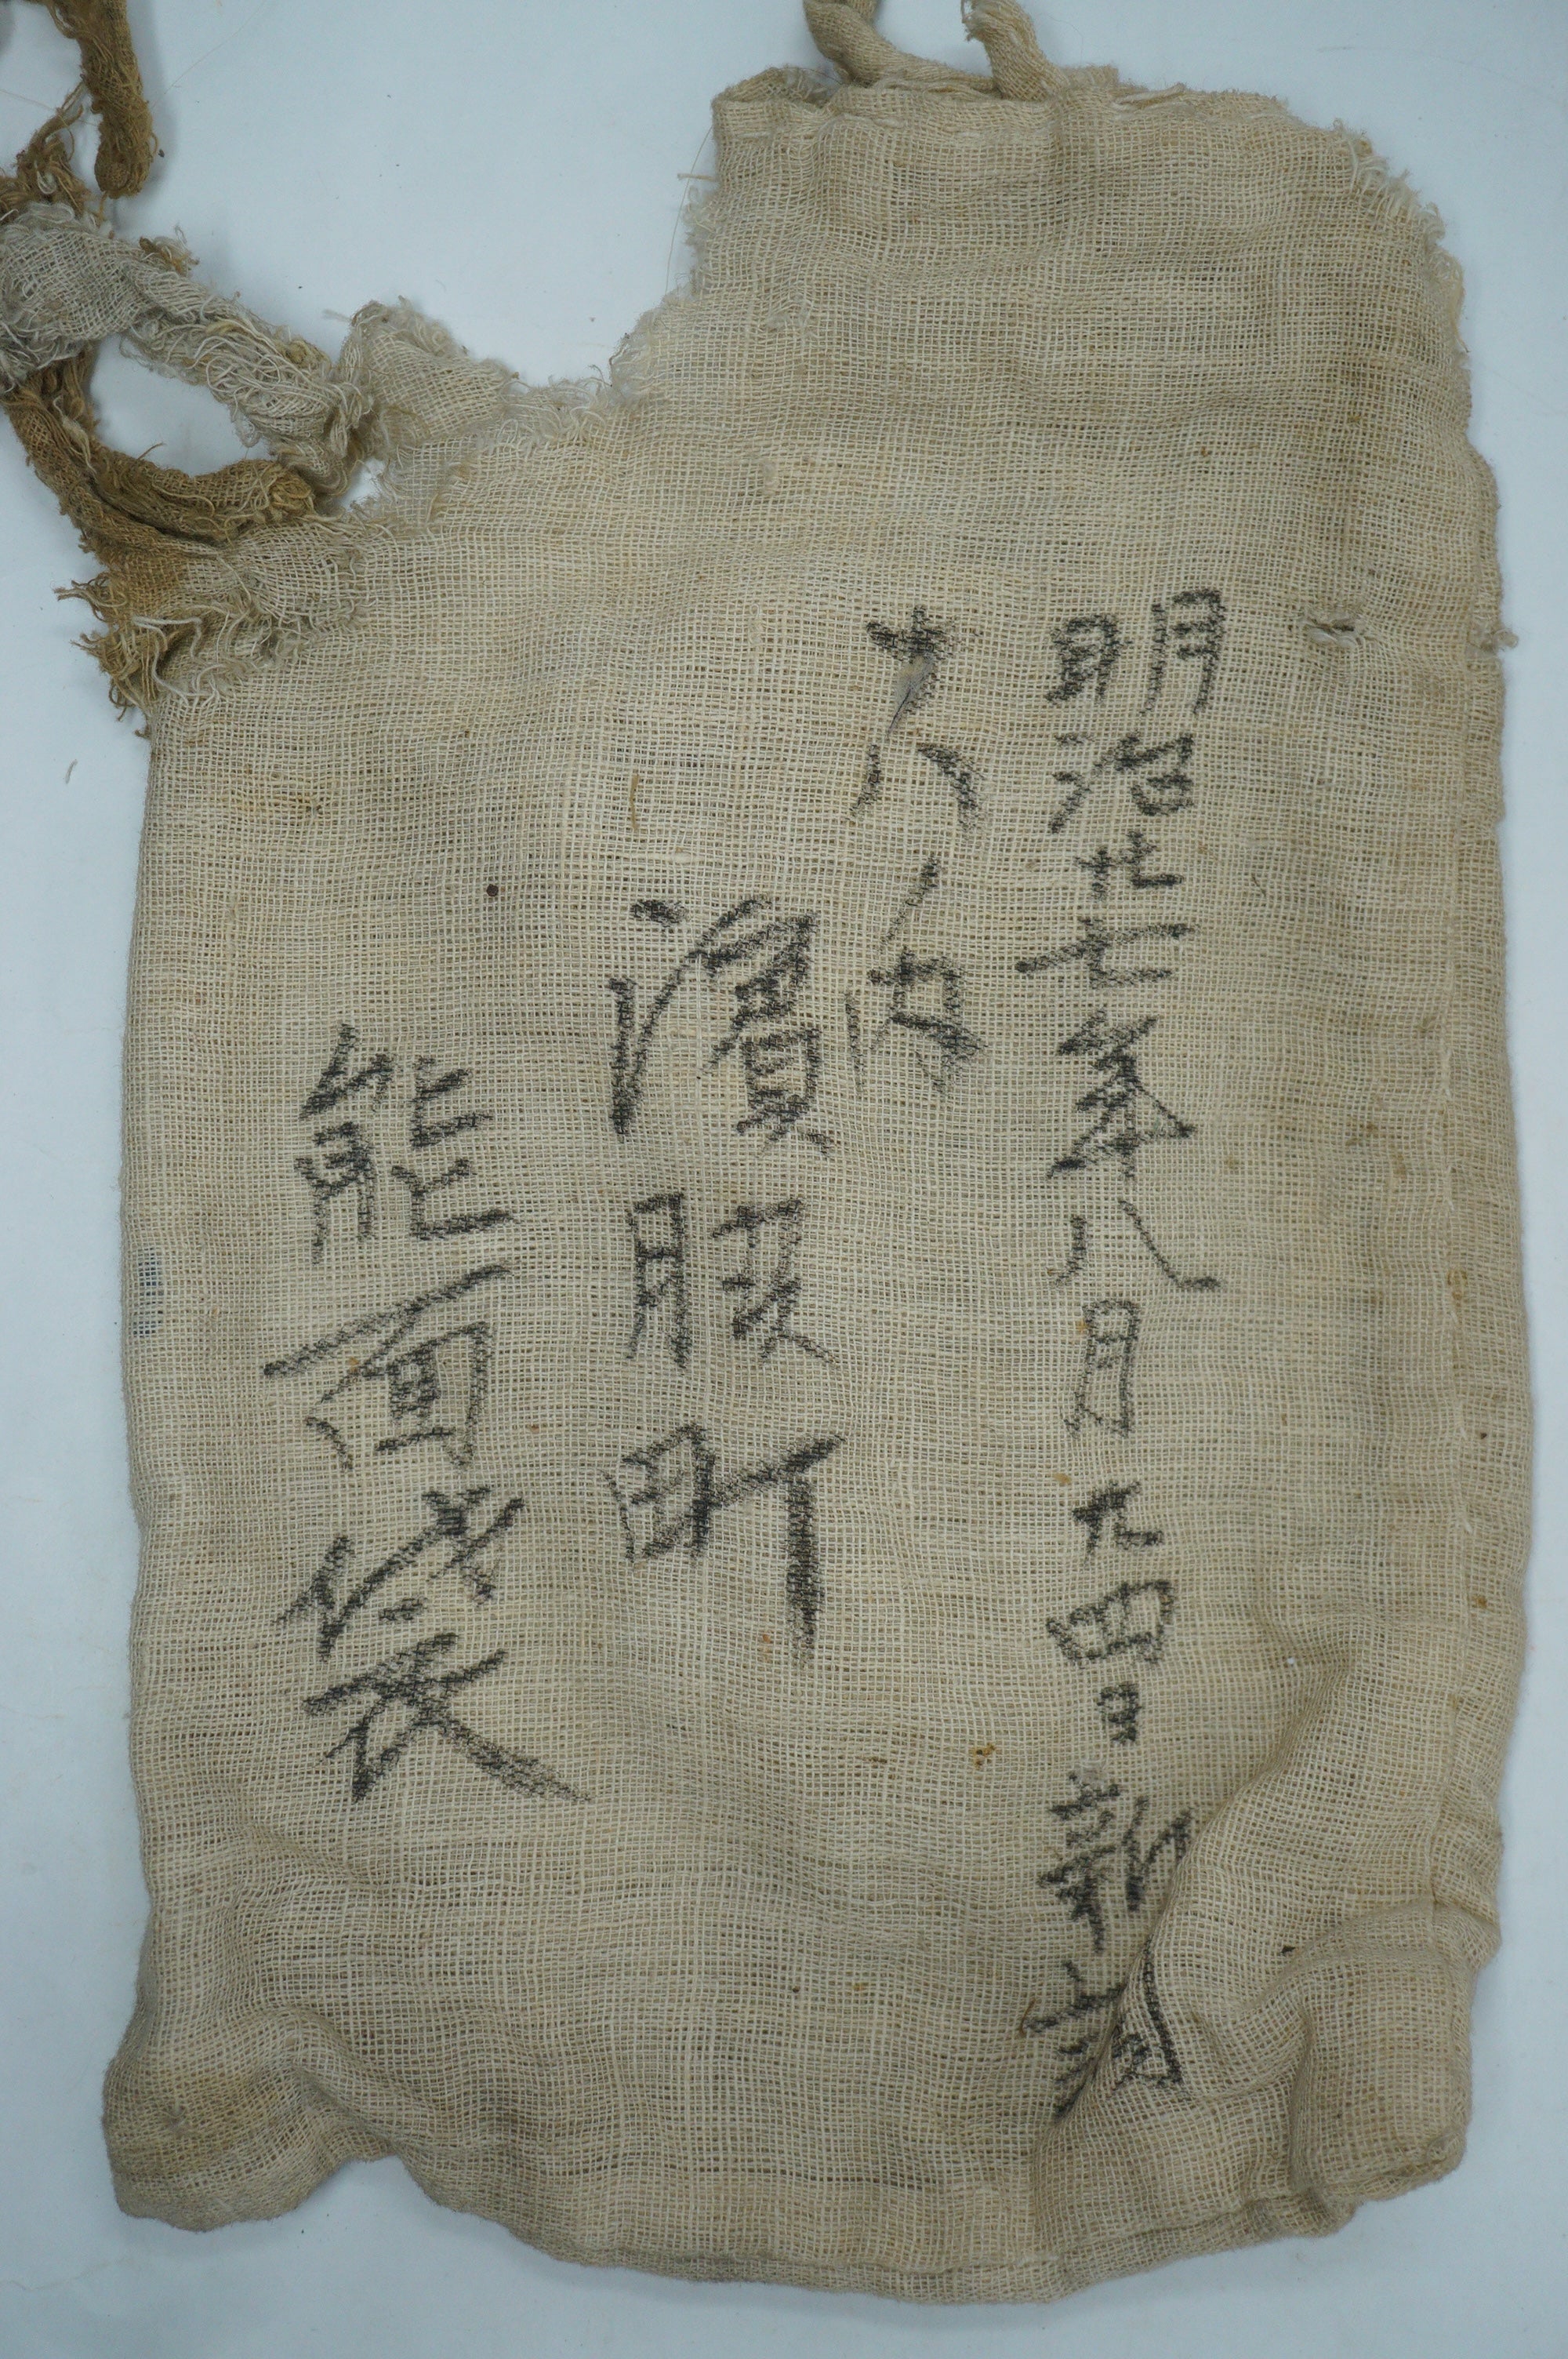 明治廿七年八月廿四日新調
大八内
濱服町
能面袋